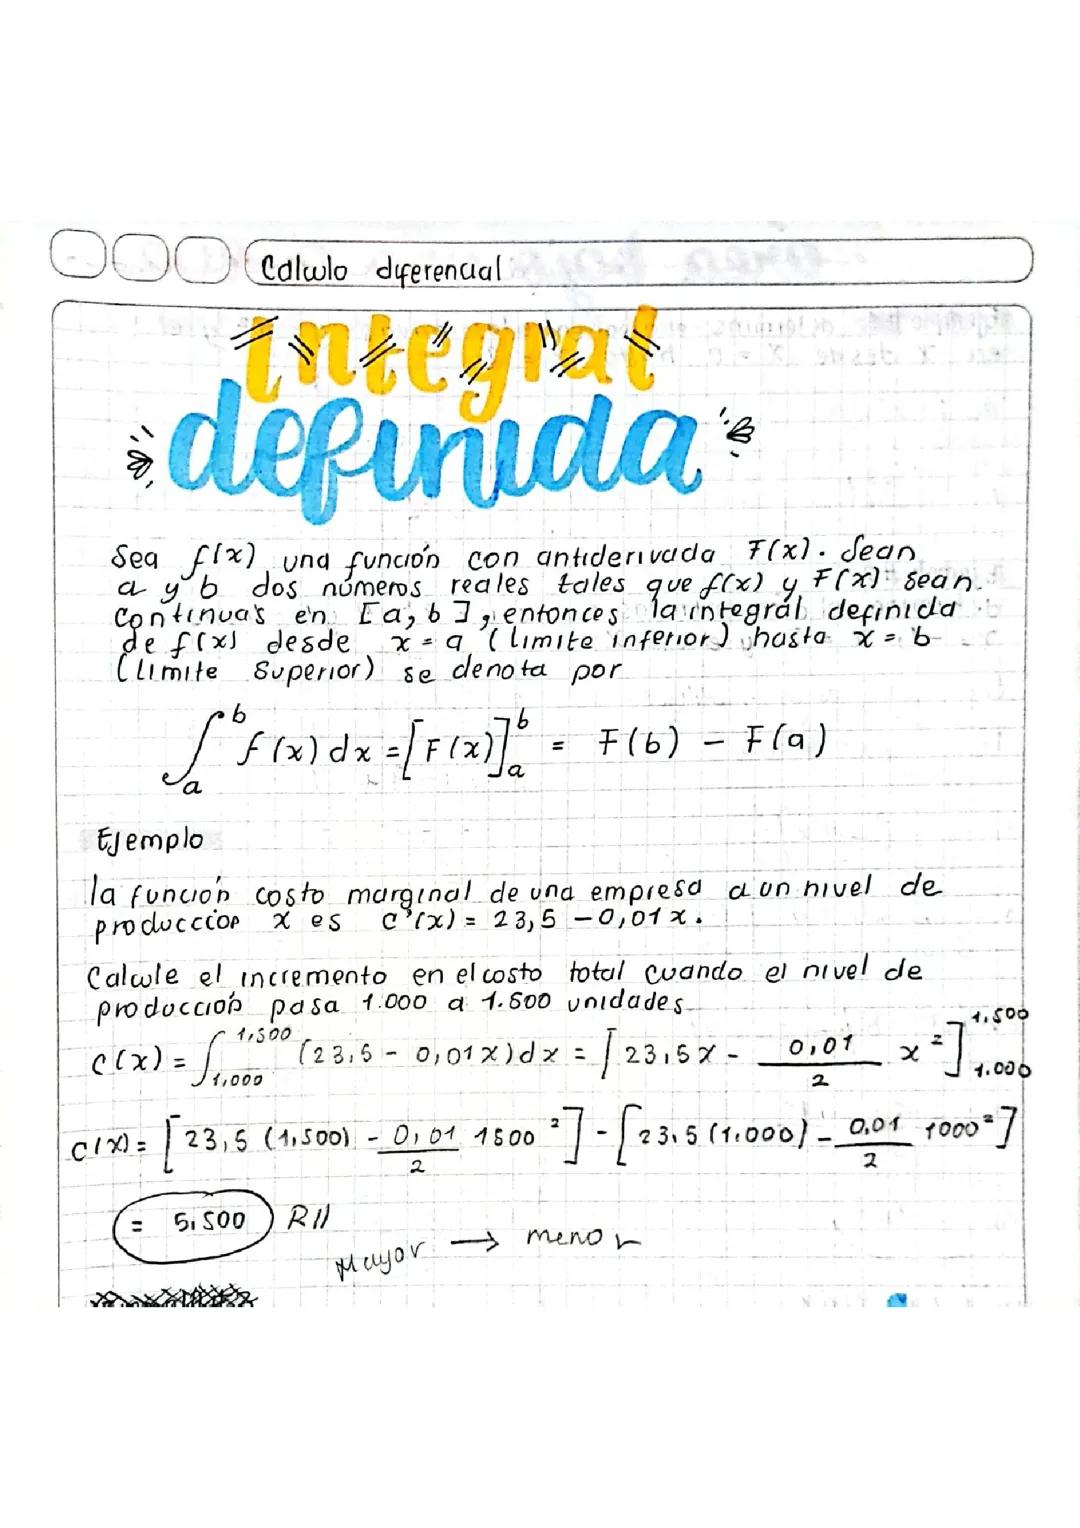 Calculo diferencial
Integral
definida
Sea f(x) una función con antiderivada F(x). Sean
a y b dos números reales tales que f(x) y F(x) sean
continuas en [a, b], entonces la integral definida
de f(x) desde x = a (limite inferior) hasta x = b
(limite superior) se denota por
∫ₐᵇ f(x) dx = [F(x)]ₐᵇ = F(b) - F(a)
Ejemplo
la función costo marginal de una empresa a un nivel de
produccion x es c'(x) = 23,5 - 0,01x.
Calcule el incremento en el costo total cuando el nivel de
producción pasa 1.000 a 1.500 unidades
C(x) = ∫ 1,000 1,500 (23,5 - 0,01x) dx = [23,5x - 0,01/2 x²] 1.000 1.500
C(x) = [23,5 (1,500) - 0,01/2 1500²] - [23,5 (1.000) - 0,01/2 1000²]
= 5,500 R//
Mayor → menor